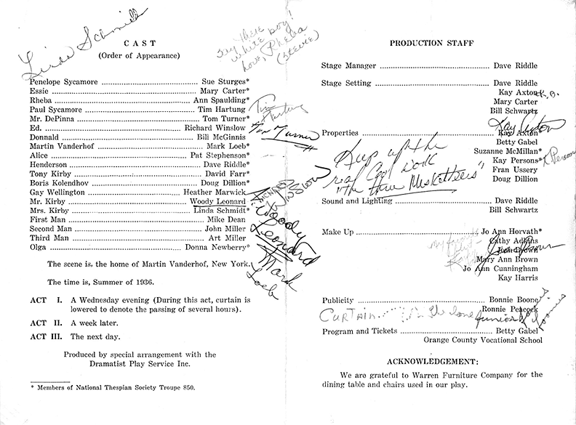 Linda Schmidt
CAST
(Order of Appearance)
Penelope Sycamore ........ Sue Sturges*
Essie ........ Mary Carter*
Rheba ........ Ann Spaulding*
Paul Sycamore ........ Tim Hartung
Mr. DePinna ........ Tom Turner*
Ed. ........ Richard Winslow
Donnald ........ Bill McGinnis
Martin Vanderhof ........ Mark Loeb*
Alice ........ Pat Stephenson*
Henderson ........ Dave Riddle*
Tony Kirby ........ David Farr*
Boris Kolendhov ........ Doug Dillion*
Gay Wellington ........ Heather Marwick
Mr. Kirby ........ Woody Leonard
Mrs. Kirby ........ Linda Schmidt*
First Man ........ Mike Dean
Second Man ........ John Miller
Third Man ........ Art Miller
Olga ........ Donna Newberry*
Tim Hartung
Tom Turner
Woody
Leonard
Mark
Loeb
The scene is. the home of Martin Vanderhof, New York.
The time is, Summer of 1936.
ACT I. A Wednesday evening (During this act, curtain is
lowered to denote the passing of several hours).
ACT II. A week later.
ACT III. The next day.
Produced by special arrangement with the
Dramatist Play Service Inc.
* Members of National Thespian Society Troupe 850.
PRODUCTION STAFF
Stage Manager ........ Dave Riddle
Stage Setting ........ Dave Riddle
Kay Axton
Mary Carter
Bill Schwartz
Kay Axton
Properties ........ Kay Axton
Betty Gabel
Suzanne McMillan*
Kay Persons*
Fran Ussery
Doug Dillion
Keep up the
real good work
"the three Musketteers"
Sound and Lighting ........ Dave Riddle
Bill Schwartz
Make Up ........ Jo Ann Horvath*
Cathy Adkins
Mary Ann Brown
Jo Ann Cunningham
Kay Harris
Publicity ........ Bonnie Boone
Ronnie Peacock
CURTAIN
Program and Tickets ........ Betty Gabel
Orange County Vocational School
ACKNOWLEDGEMENT:
We are grateful to Warren Furniture Company for the
dining table and chairs used in our play.